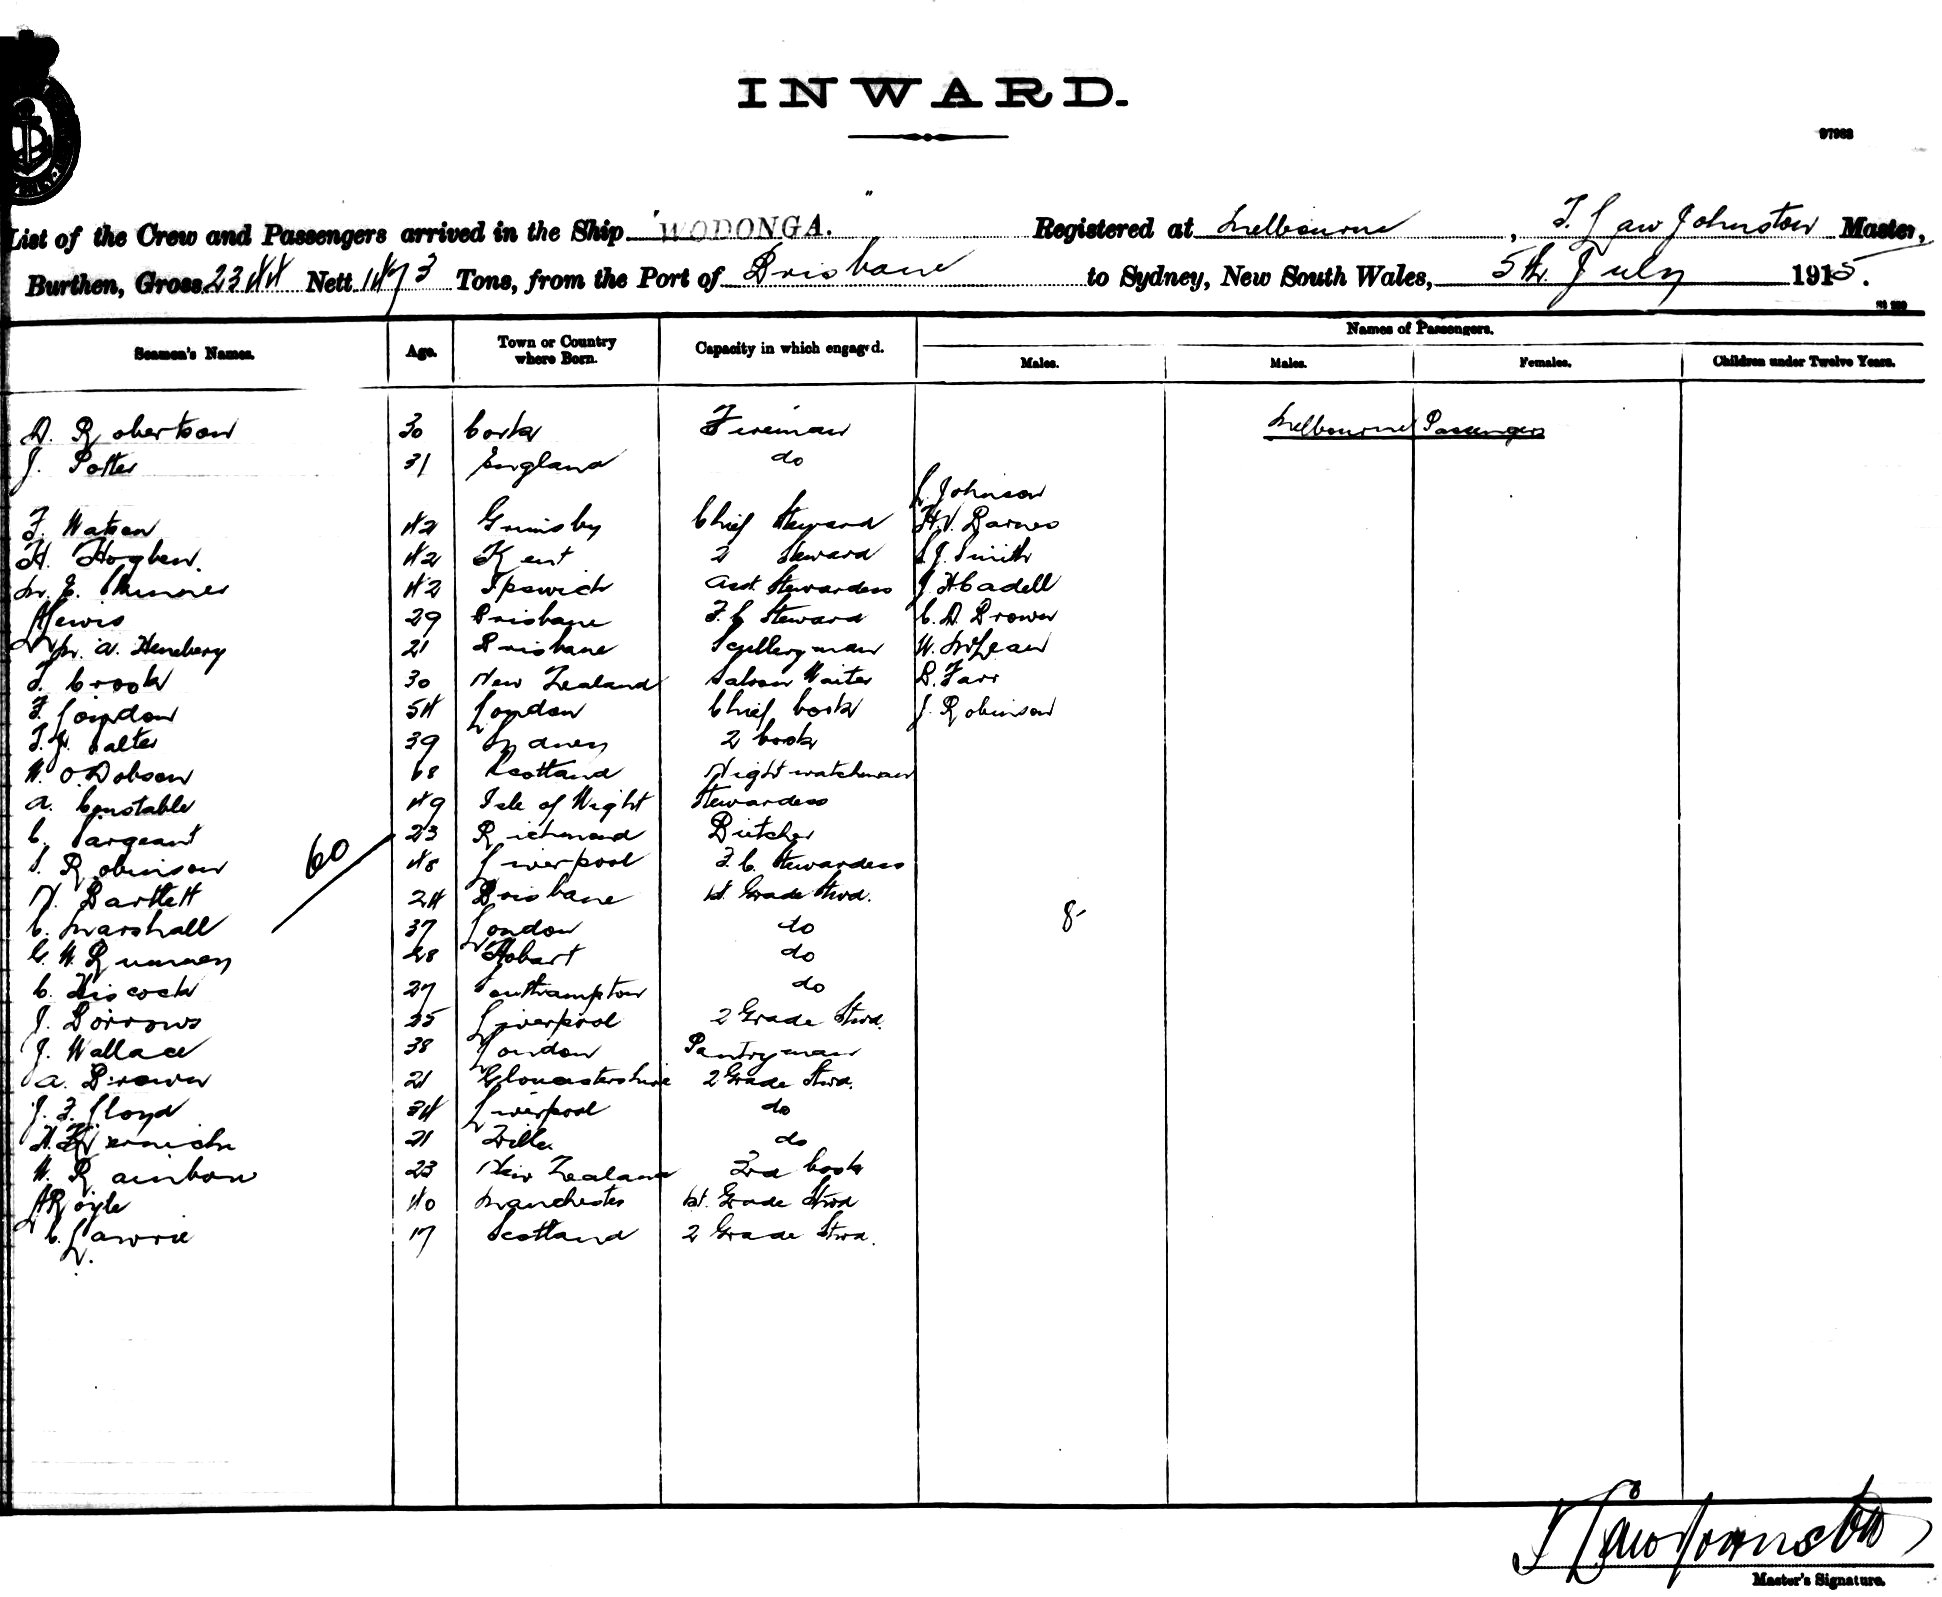 INWARD.
97983
List of the Crew and Passengers arrived in the Ship "WODONGA." Registered at Melbourne, T. Law Johnston Master,
Burthen, Gross 2344 Nett 1473 Tons, from the Port of Brisbane to Sydney, New South Wales, 5th July 1915.
Seamen's Names. Age. Town or Country where Born. Capacity in which engaged. Names of Passengers.
Males. Males. Females. Children under Twelve Years.
D. Robertson 30 Cork Fireman Melbourne Passengers
J. Potter 31 England do
L. Johnson
F. Watson 42 Grimsby Chief Steward H.V. Barnes
H. Hogben. 42 Kent 2 Steward S.J. Smith
42 Ipswich Asst. Stewardess J H Cadell
Lewis 29 Brisbane F.C Steward C. D. Brown
M. A. Henebery 21 Brisbane Scullery man W. McLean
T. Crook 30 New Zealand Saloon Waiter D. Farr
F. Loindon 54 London Chief Cook J. Robinson
T. J. Salter 39 Sydney 2 Cook
W. O. Dobson 68 Scotland Night watchman
A. Constable 49 Isle of Wight Stewardess
C. Sargeant 23 Richmond Butcher
S. Robinson 48 Liverpool F.C. Stewardess
60
N. Bartlett 24 Brisbane 1st Grade Stwd.
C. Marshall 37 London do 8
C. W. Rumney 28 Hobart do
C. Hiscock 27 Southampton do
J. Borrows 25 Liverpool 2 Grade Stwd.
J. Wallace 38 London Pantryman
A. Brown 21 Gloucestershire 2 Grade Stwd.
J. F. Lloyd 34 Liverpool do
21 do
W. Rainbow 23 New Zealand 3rd Cook
L Royle 40 Manchester 1st. Grade Stwd
C. Lawrie 17 Scotland 2 Grade Stwd.
T Law Johnston
Master's Signature.